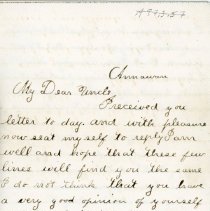 Annawan
My Dear Uncle,
I received you
letter to day. and with pleasure
now seat myself to reply I am
well and hope that these few
lines will find you the same
I do not think that you have
a very good opinion of yourself